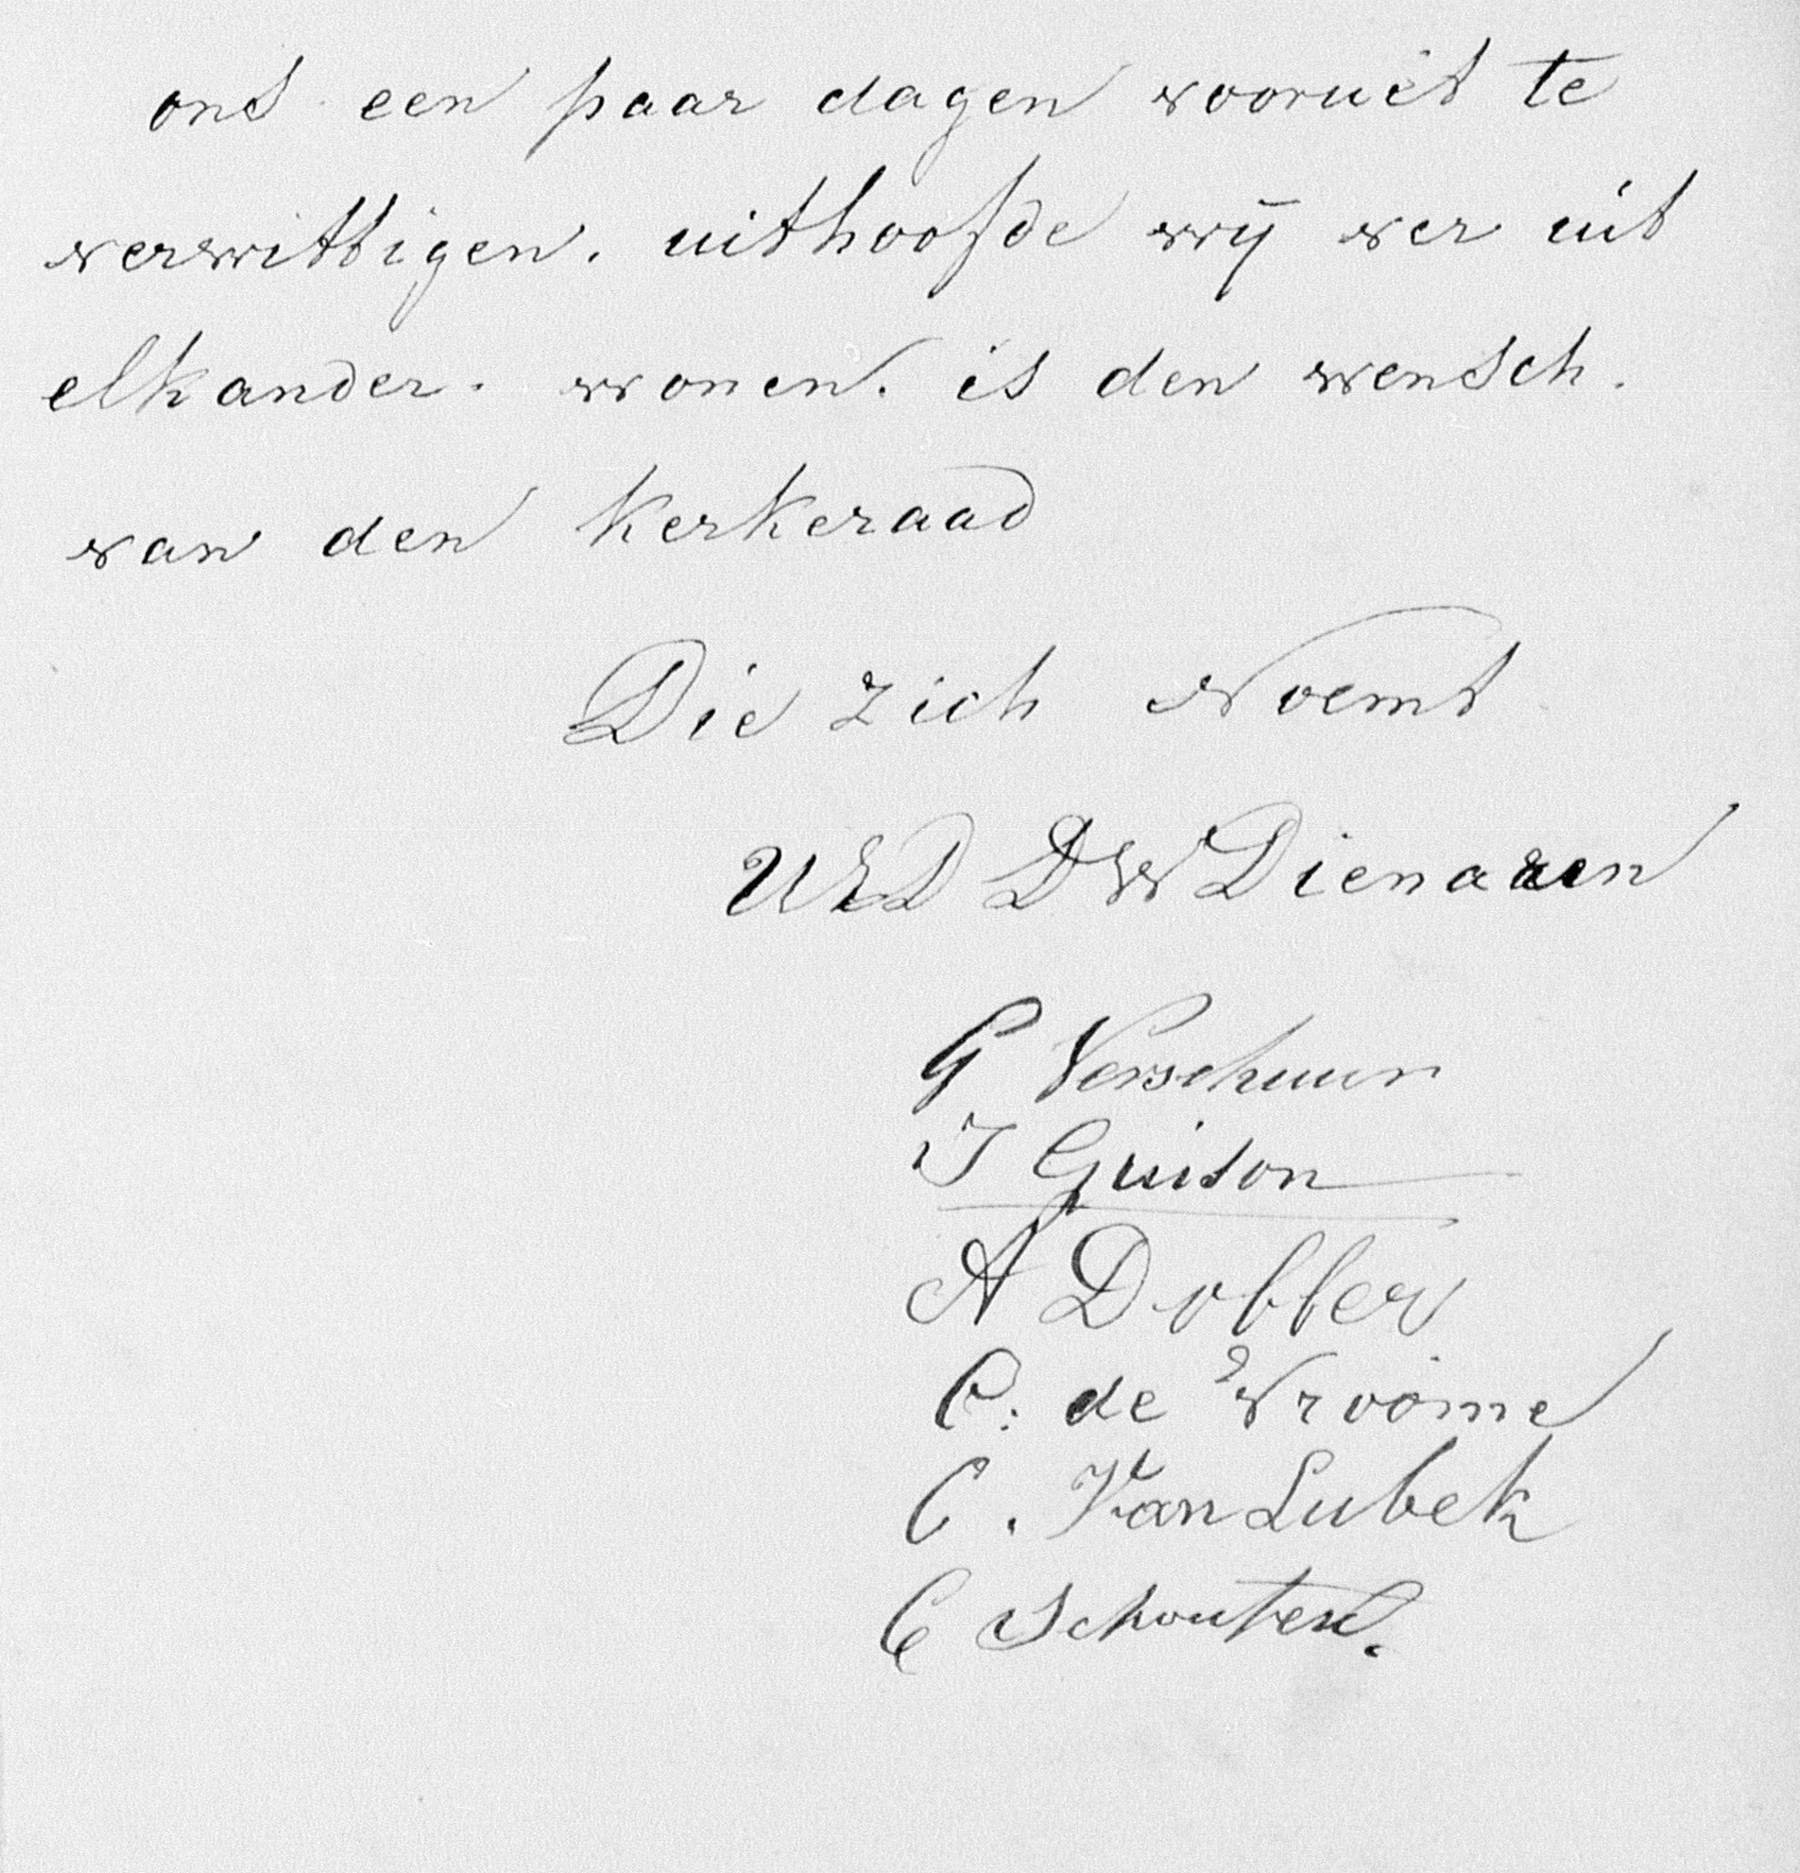 ons een paar dagen vooruit te
verwittigen. uithoofde wij ver uit
elkander. wonen. is den wensch.
van den Kerkeraad
Die zich Noemt
UED DW Dienaren
G Verschuur
J Guiton
A Dobber
C. de Vroome
C. Van Lubek
C Schouten.